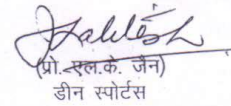 (प्रो. एल.के. जैन)
डीन स्पोर्टस